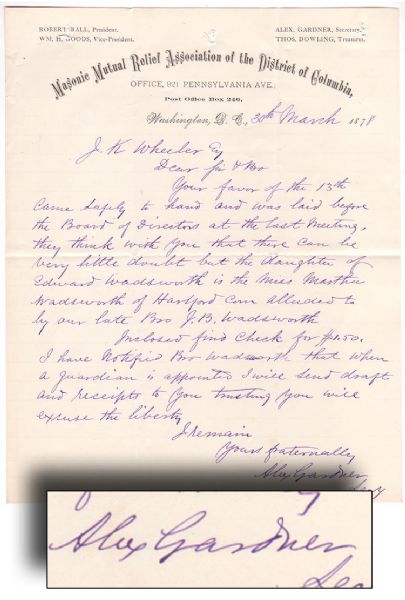 ROBERT BALL, President.
WM. H. GOODS, Vice-President.
ALEX. GARDNER, Secretary.
THOS. DOWLING, Treasurer.
Masonic Mutual Relief Association of the District of Columbia,
OFFICE, 921 PENNSYLVANIA AVE.,
Post Office Box 246,
Washington, D. C., 30th March 1878
J. K Wheeler Esq
Dear Sir & Bro
Your favor of the 13th
Came Safely to hand and was laid before
the Board of Directors at the last Meeting,
they think with You that there can be
very little doubt but the daughter of
Edward Wadsworth is the Miss Martha
Wadsworth of Hartford Con alluded to
by our late Bro J. B. Wadsworth
Inclosed find Check for
I have Notified Bro Wadsworth that when
a guardian is appointed I will send draft
and receipts to You trusting You will
excuse the liberty
I remain
Yours fraternally
Alex Gardner
Secy
Alex Gardner
Sec